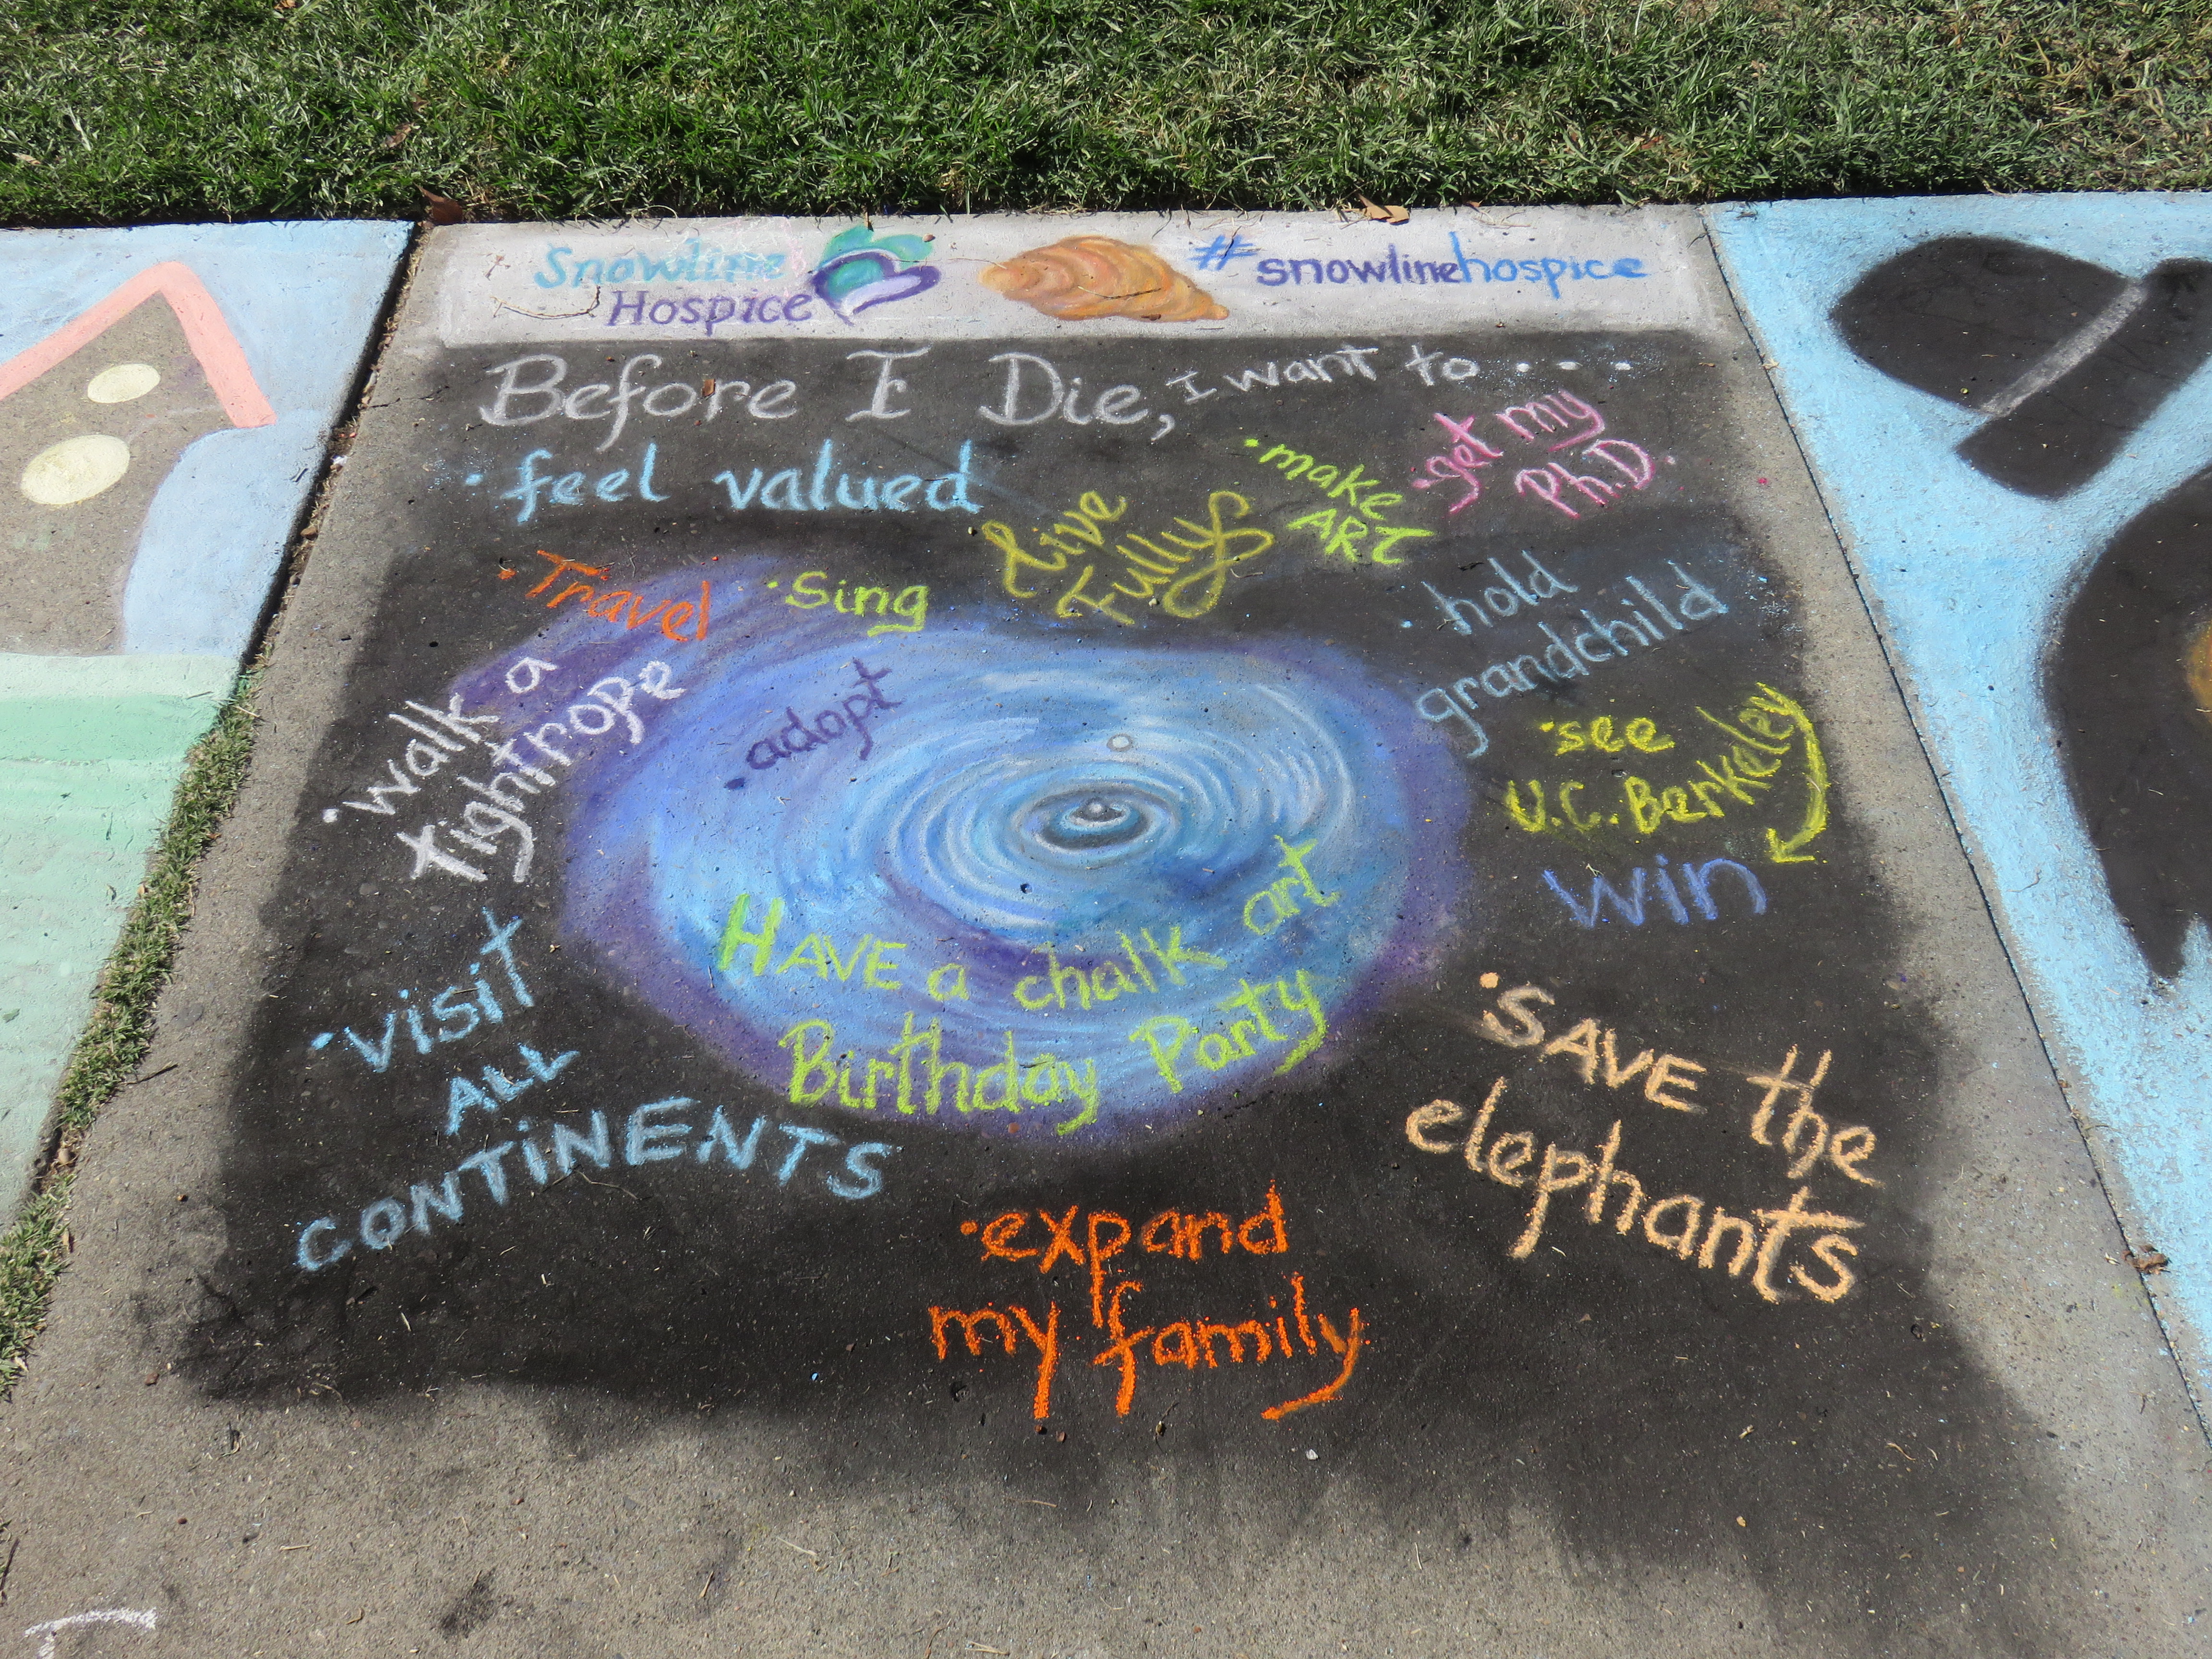 Snowline
Hospice
#snowlinehospice
Before I Die, I want to ....
• feel valued
• make
ART
• get my
Ph.D.
Live
Fully
• Travel
• Sing
• hold
grandchild
• walk a
tightrope
• adopt
• see
U.C. Berkeley
win
HAVE a chalk art
Birthday Party
• visit
ALL
CONTiNENTS
• SAVE the
elephants
• expand
my family